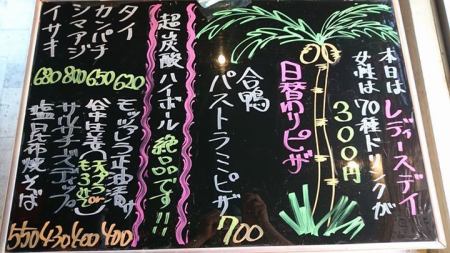 本日はレディースデイ
女性は70種ドリンクが
300円
日替りピザ
合鴨
パストラミピザ 700
超炭酸ハイボール 絶品です!!!
タイ 620
カンパチ 650
シマアジ 800
イサキ 680
モッツァレラ正油漬け 400
谷中生姜 (天ぷら or もろきゅう) 400
サルサチーズディップ 430
塩昆布焼そば 550